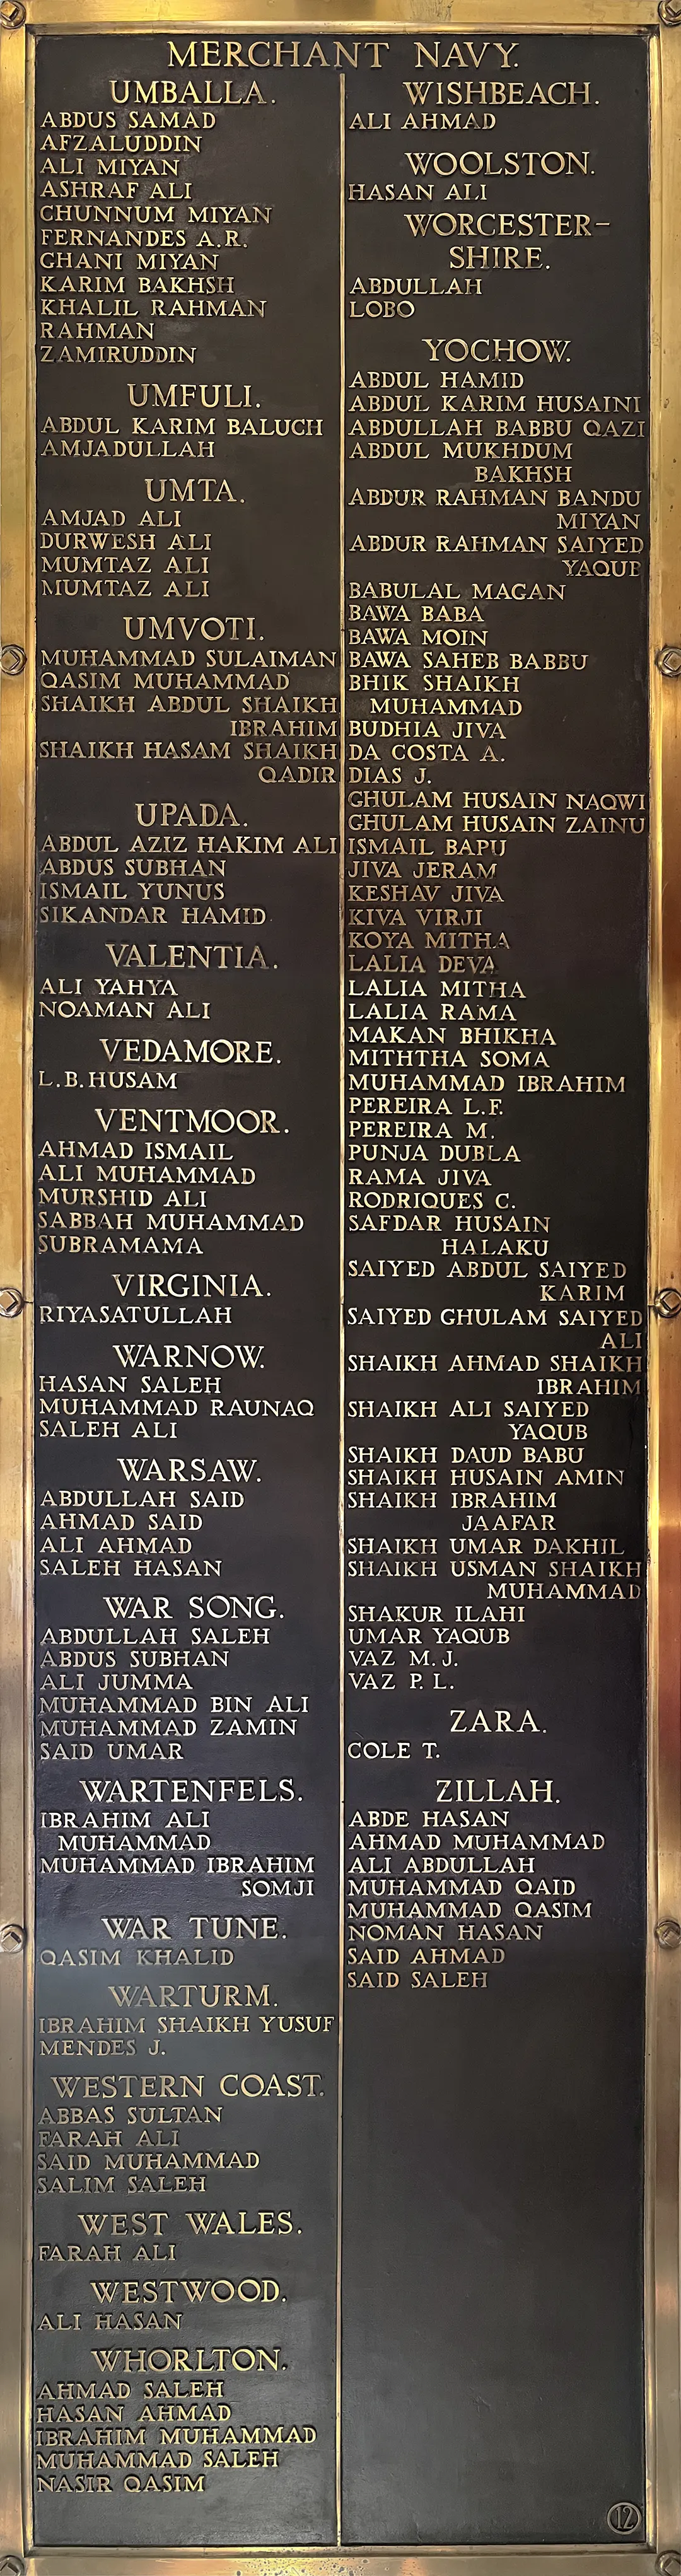 MERCHANT NAVY.
UMBALLA.
ABDUS SAMAD
AFZALUDDIN
ALI MIYAN
ASHRAF ALI
CHUNNUM MIYAN
FERNANDES A.R.
GHANI MIYAN
KARIM BAKHSH
KHALIL RAHMAN
RAHMAN
ZAMIRUDDIN
UMFULI.
ABDUL KARIM BALUCH
AMJADULLAH
UMTA.
AMJAD ALI
DURWESH ALI
MUMTAZ ALI
MUMTAZ ALI
UMVOTI.
MUHAMMAD SULAIMAN
QASIM MUHAMMAD
SHAIKH ABDUL SHAIKH
IBRAHIM
SHAIKH HASAM SHAIKH
QADIR
UPADA.
ABDUL AZIZ HAKIM ALI
ABDUS SUBHAN
ISMAIL YUNUS
SIKANDAR HAMID
VALENTIA.
ALI YAHYA
NOAMAN ALI
VEDAMORE.
L.B.HUSAM
VENTMOOR.
AHMAD ISMAIL
ALI MUHAMMAD
MURSHID ALI
SABBAH MUHAMMAD
SUBRAMAMA
VIRGINIA.
RIYASATULLAH
WARNOW.
HASAN SALEH
MUHAMMAD RAUNAQ
SALEH ALI
WARSAW.
ABDULLAH SAID
AHMAD SAID
ALI AHMAD
SALEH HASAN
WAR SONG.
ABDULLAH SALEH
ABDUS SUBHAN
ALI JUMMA
MUHAMMAD BIN ALI
MUHAMMAD ZAMIN
SAID UMAR
WARTENFELS.
IBRAHIM ALI
MUHAMMAD
MUHAMMAD IBRAHIM
SOMJI
WAR TUNE.
QASIM KHALID
WARTURM.
IBRAHIM SHAIKH YUSUF
MENDES J.
WESTERN COAST.
ABBAS SULTAN
FARAH ALI
SAID MUHAMMAD
SALIM SALEH
WEST WALES.
FARAH ALI
WESTWOOD.
ALI HASAN
WHORLTON.
AHMAD SALEH
HASAN AHMAD
IBRAHIM MUHAMMAD
MUHAMMAD SALEH
NASIR QASIM
WISHBEACH.
ALI AHMAD
WOOLSTON.
HASAN ALI
WORCESTER-
SHIRE.
ABDULLAH
LOBO
YOCHOW.
ABDUL HAMID
ABDUL KARIM HUSAINI
ABDULLAH BABBU QAZI
ABDUL MUKHDUM
BAKHSH
ABDUR RAHMAN BANDU
MIYAN
ABDUR RAHMAN SAIYED
YAQUB
BABULAL MAGAN
BAWA BABA
BAWA MOIN
BAWA SAHEB BABBU
BHIK SHAIKH
MUHAMMAD
BUDHIA JIVA
DA COSTA A.
DIAS J.
GHULAM HUSAIN NAQWI
GHULAM HUSAIN ZAINU
ISMAIL BAPU
JIVA JERAM
KESHAV JIVA
KIVA VIRJI
KOYA MITHA
LALIA DEVA
LALIA MITHA
LALIA RAMA
MAKAN BHIKHA
MITHTHA SOMA
MUHAMMAD IBRAHIM
PEREIRA L.F.
PEREIRA M.
PUNJA DUBLA
RAMA JIVA
RODRIQUES C.
SAFDAR HUSAIN
HALAKU
SAIYED ABDUL SAIYED
KARIM
SAIYED GHULAM SAIYED
ALI
SHAIKH AHMAD SHAIKH
IBRAHIM
SHAIKH ALI SAIYED
YAQUB
SHAIKH DAUD BABU
SHAIKH HUSAIN AMIN
SHAIKH IBRAHIM
JAAFAR
SHAIKH UMAR DAKHIL
SHAIKH USMAN SHAIKH
MUHAMMAD
SHAKUR ILAHI
UMAR YAQUB
VAZ M.J.
VAZ P.L.
ZARA.
COLE T.
ZILLAH.
ABDE HASAN
AHMAD MUHAMMAD
ALI ABDULLAH
MUHAMMAD QAID
MUHAMMAD QASIM
NOMAN HASAN
SAID AHMAD
SAID SALEH
12